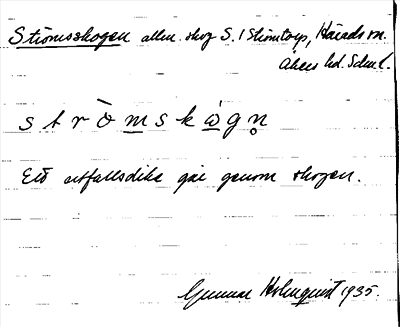 Strömsskogen allm. skog S. i Strömtorp, Härads sn.
Åkers hd. Sdml.
s t r ò̈ m s k ò g n̥
Ett utfallsdike går genom skogen.
Gunnar Holmquist 1935.